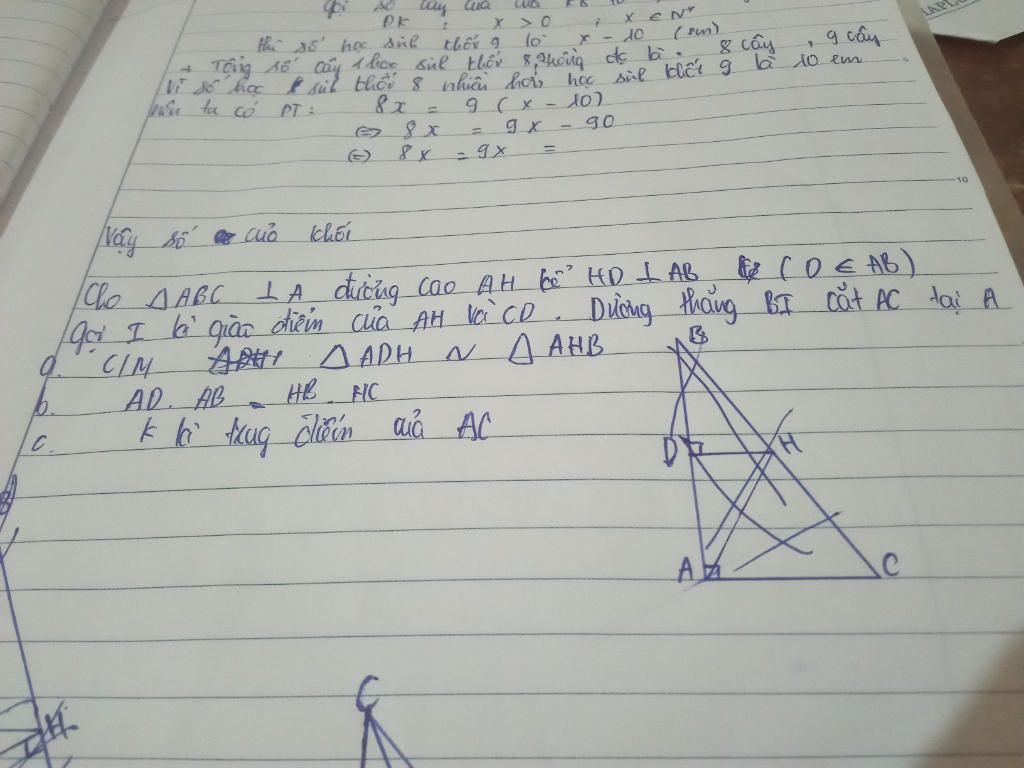 Gọi số cây của
ĐK : x > 0 ; x ∈ N*
thì số học sinh khối 9 là x - 10 (em)
+ Tổng số cây 1 học sinh khối 8, trồng đc là : 8 cây , 9 cây
Vì số học sinh khối 8 nhiều hơn học sinh khối 9 là 10 em
nên ta có PT : 8x = 9 (x - 10)
<=> 8x = 9x - 90
<=> 8x = 9x =
10
Vậy số của khối
Cho △ABC ⊥ A đường cao AH kẻ HD ⊥ AB (D ∈ AB)
gọi I là giao điểm của AH và CD . Đường thẳng BI cắt AC tại A
a. C/M △ ADH ~ △ AHB
b. AD . AB = HB . HC
c. K là trug điểm của AC
B
D
H
A
C
H
C